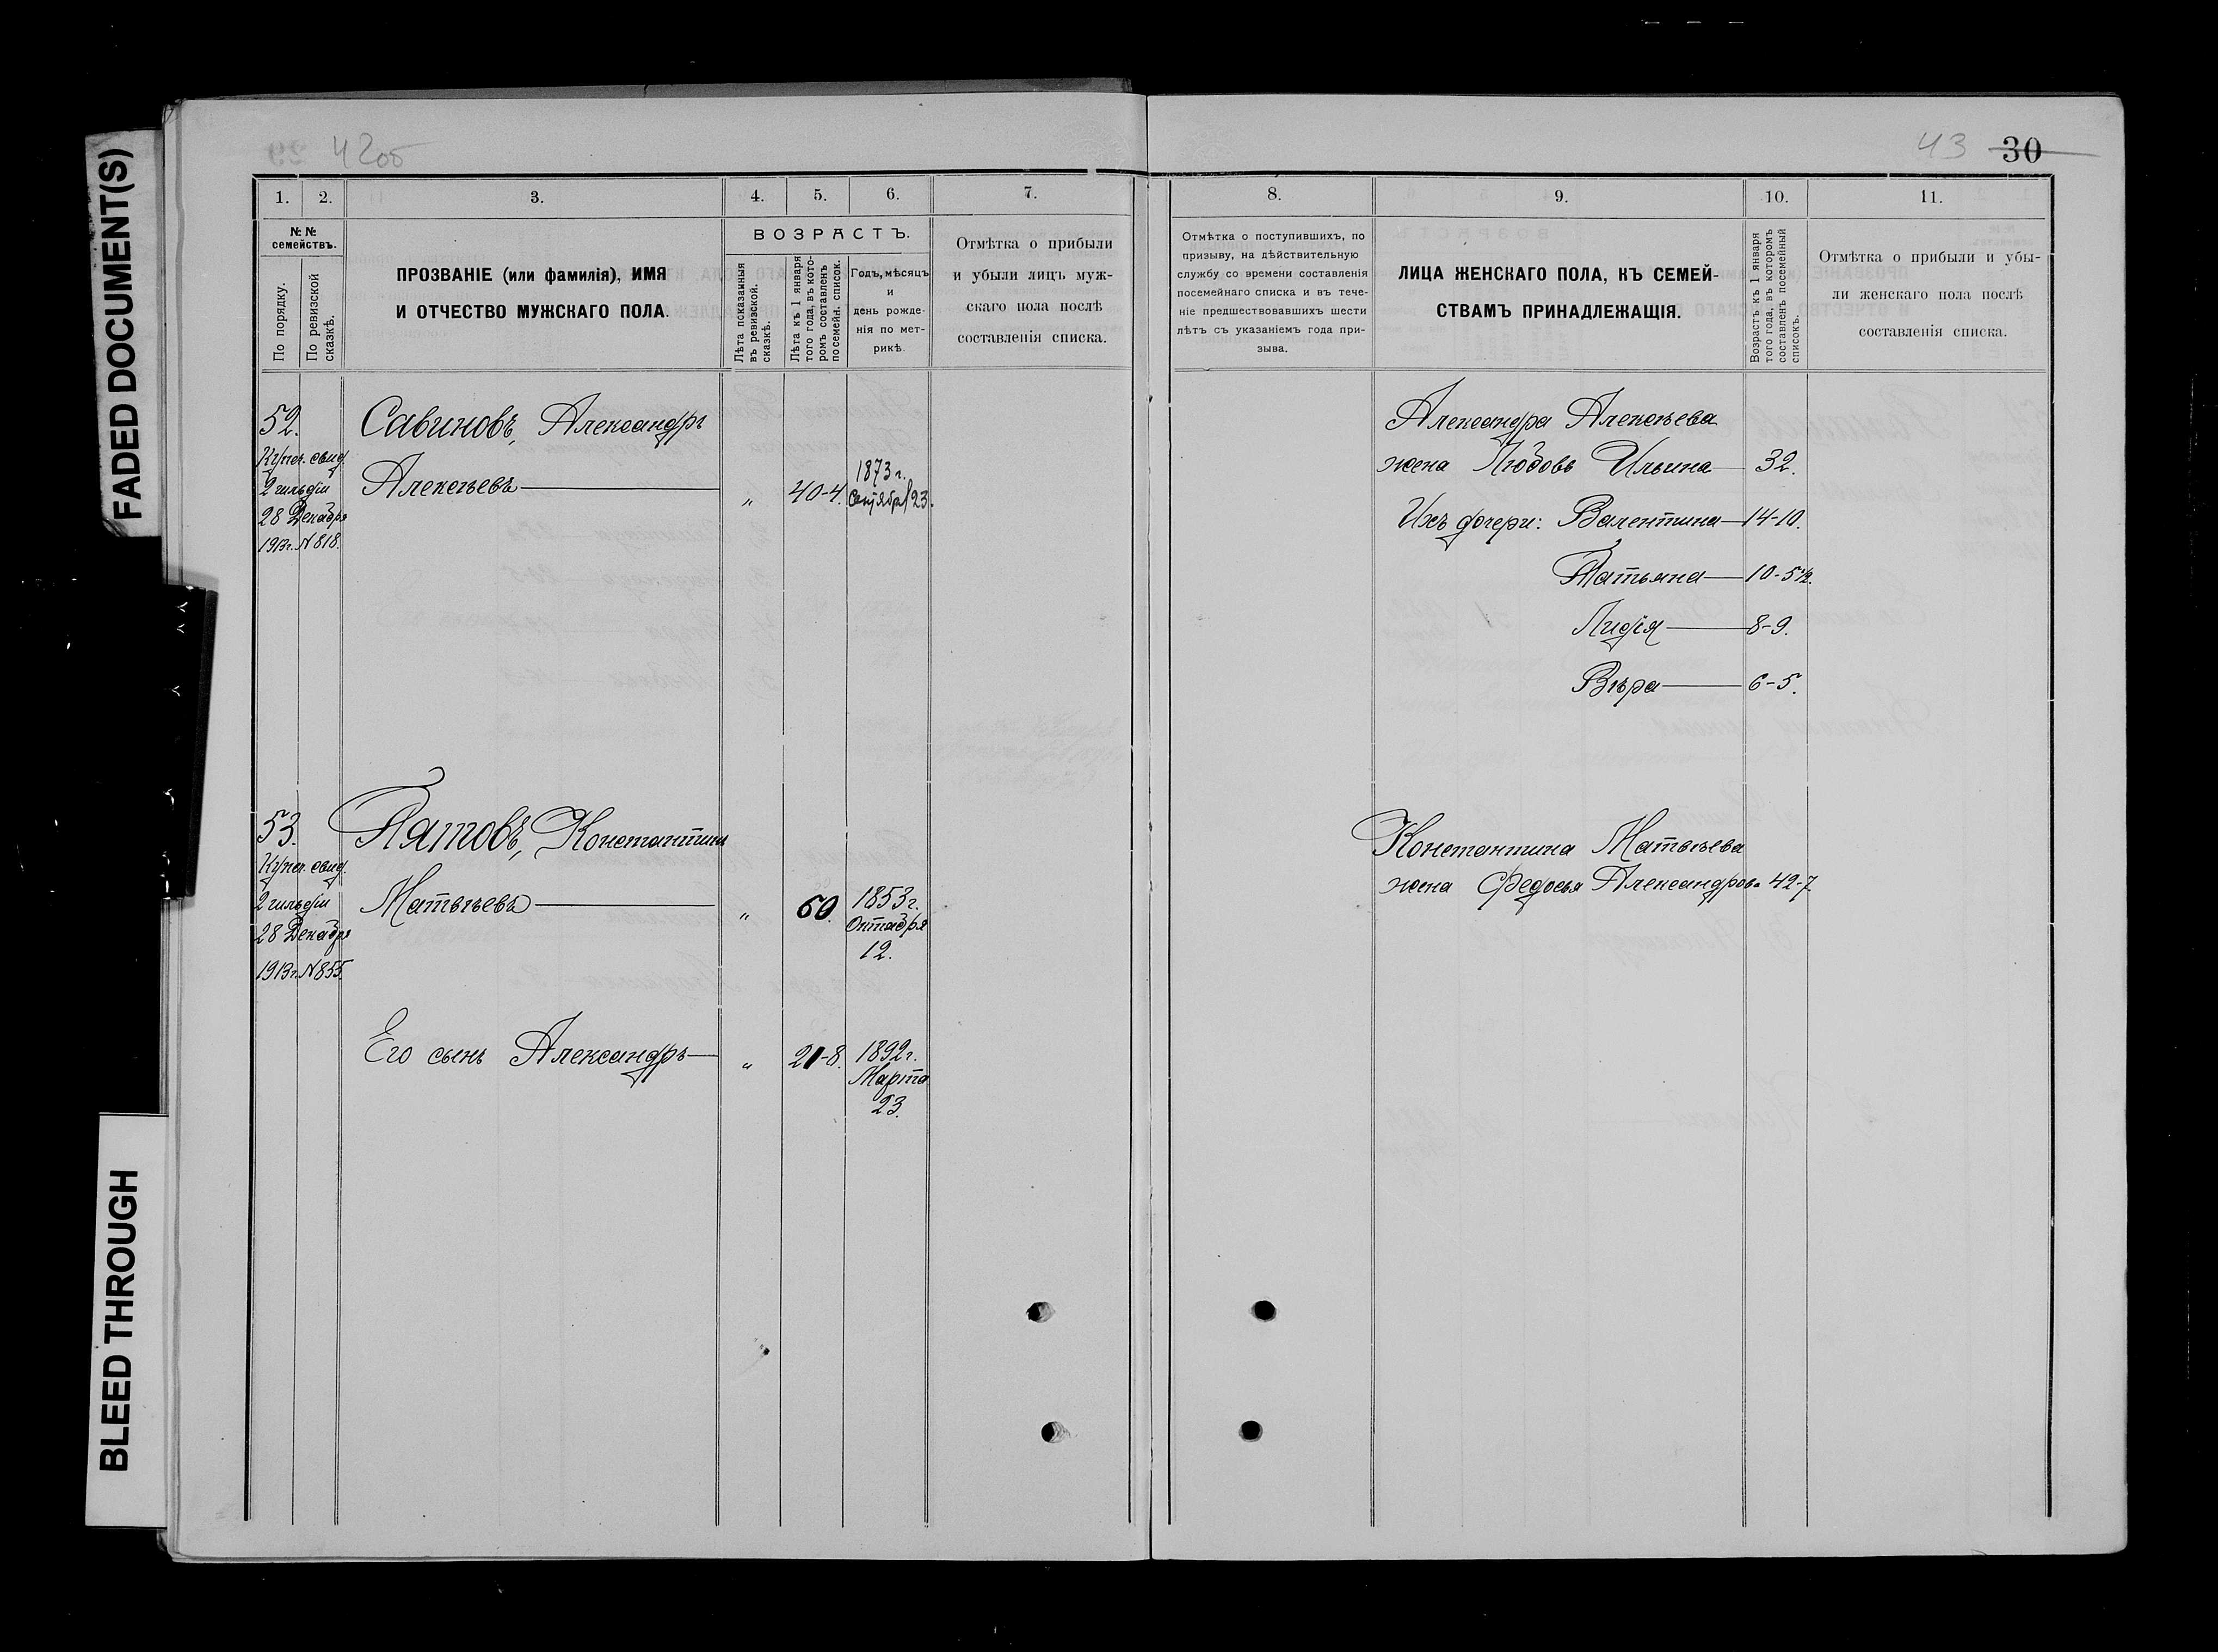 FADED DOCUMENT(S)
BLEED THROUGH
42об
43 30
1. 2. 3. 4. 5. 6. 7.
№ №
семействъ.
По порядку.
По ревизской
сказкѣ.
ПРОЗВАНІЕ (или фамилія), ИМЯ
И ОТЧЕСТВО МУЖСКАГО ПОЛА.
ВОЗРАСТЪ.
Лѣта показанныя
въ ревизской.
сказкѣ.
Лѣта къ 1 января
того года, въ кото-
ромъ составленъ
посемейн. список.
Годъ, мѣсяцъ
и
день рожде-
нія по мет-
рикѣ.
Отмѣтка о прибыли
и убыли лицъ муж-
скаго пола послѣ
составленія списка.
52. Савиновъ, Александръ
Купеч. свид.
2 гильдіи Алексѣевъ " 40-4. 1873 г. Сентября 23.
28 Декабря
1913 г. N 818.
53. Пятовъ, Константинъ
Купеч. свид.
2 гильдіи Матвѣевъ " 60. 1853 г.
28 Декабря Октября
1913 г. N 855. 12.
Его сынъ Александръ " 21-8. 1892 г.
Марта
23.
8. 9. 10. 11.
Отмѣтка о поступившихъ, по
призыву, на дѣйствительную
службу со времени составленія
посемейнаго списка и въ тече-
ніе предшествовавшихъ шести
лѣтъ съ указаніемъ года при-
зыва.
ЛИЦА ЖЕНСКАГО ПОЛА, КЪ СЕМЕЙ-
СТВАМЪ ПРИНАДЛЕЖАЩІЯ.
Возрастъ къ 1 января
того года, въ которомъ
составленъ посемейный
списокъ.
Отмѣтка о прибыли и убы-
ли женскаго пола послѣ
составленія списка.
Александра Алексѣева
жена Любовь Ильина 32.
Ихъ дочери: Валентина 14-10.
Татьяна 10-5½.
Лидія 8-9.
Вѣра 6-5.
Константина Матвѣева
жена Федосья Александрова 42-7